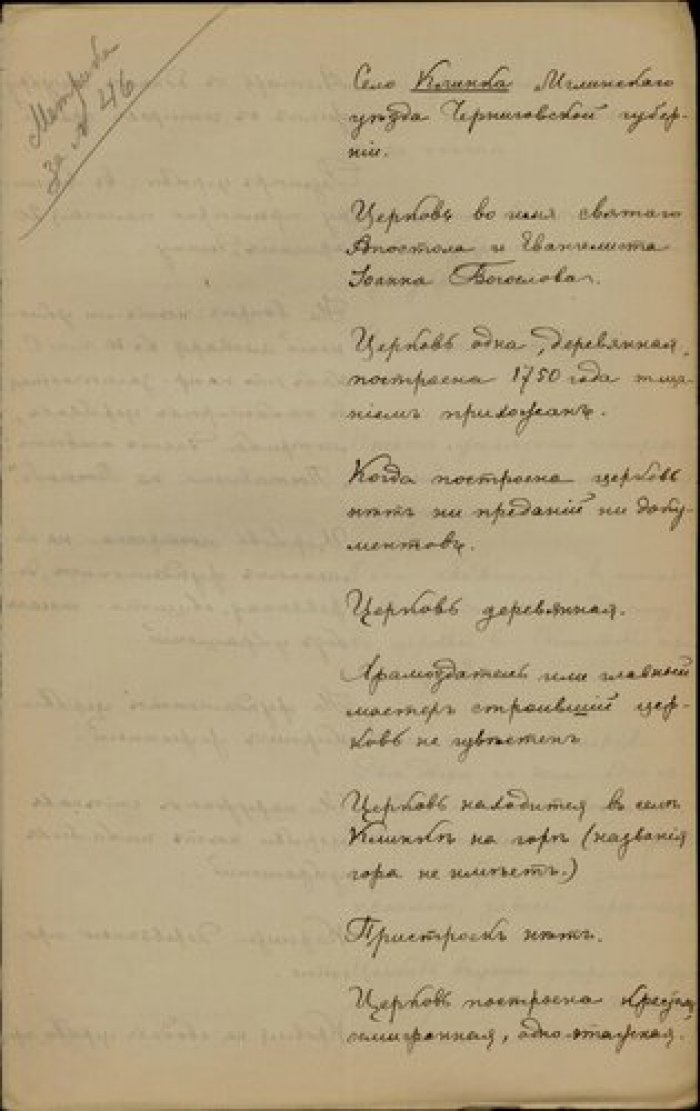 Метрика
за № 416
Село Клинка Мглинскаго
уѣзда Черниговской губер-
ніи.
Церковь во имя святаго
Апостола и Евангелиста
Іоанна Богослова.
Церковь одна, деревянная,
построена 1750 года тща-
ніемъ прихожанъ.
Когда построена церковь
нѣтъ ни преданій ни доку-
ментовъ.
Церковь деревянная.
Храмоздатель или главный
мастеръ строившій цер-
ковь не извѣстенъ
Церковь находится въ селѣ
Клинкѣ на горѣ (названія
гора не имѣетъ.)
Пристроекъ нѣтъ.
Церковь построена
одно-этажная.